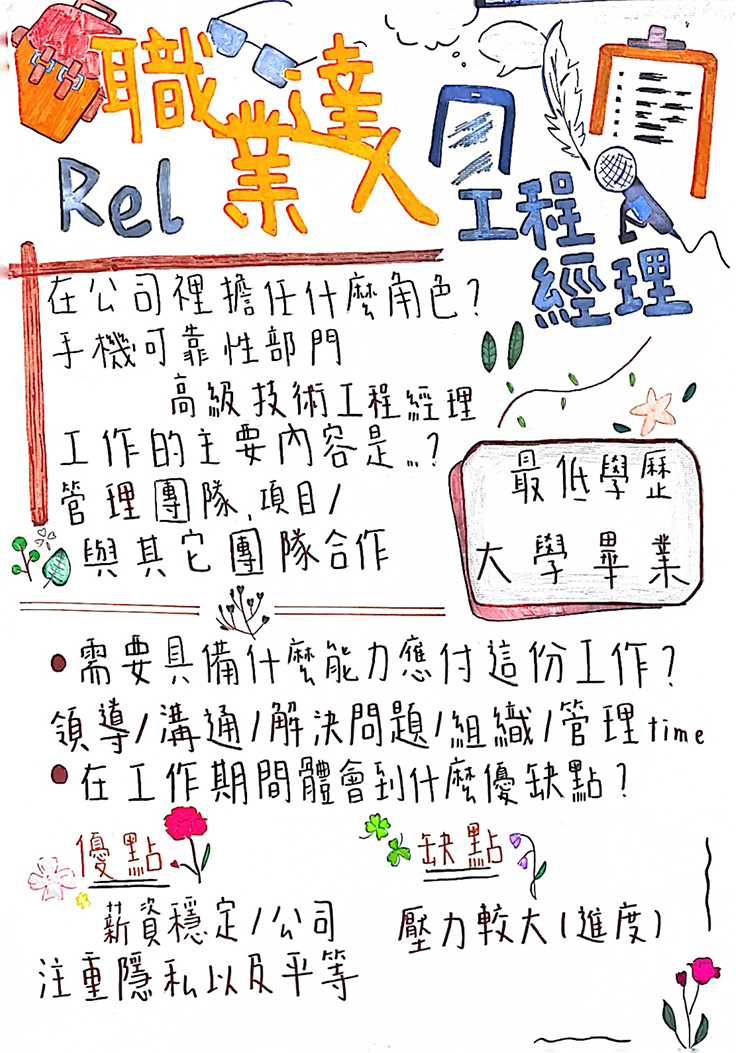 職業達人
Rel
工程
經理
在公司裡擔任什麼角色？
手機可靠性部門
高級技術工程經理
工作的主要內容是…？
管理團隊、項目/
與其它團隊合作
最低學歷
大學畢業
需要具備什麼能力應付這份工作？
領導/溝通/解決問題/組織/管理time
在工作期間體會到什麼優缺點？
優點
缺點
薪資穩定/公司
注重隱私以及平等
壓力較大(進度)